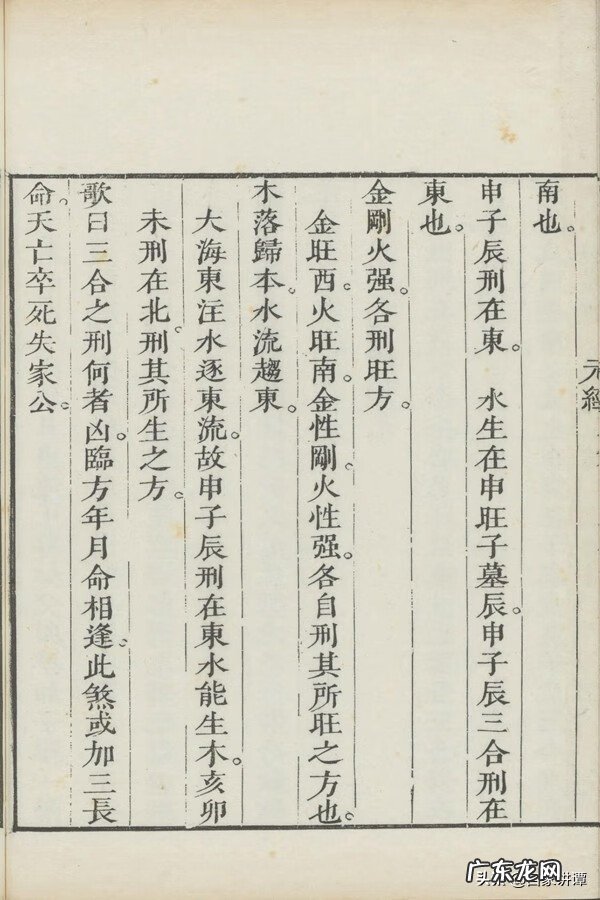 南也。
申子辰刑在東。　水生在申旺子墓辰。申子辰三合刑在
東也。
金剛火强。各刑旺方。
金旺西。火旺南。金性剛。火性强。各自刑其所旺之方也。
木落歸本。水流趨東。
大海東注水逐東流。故申子辰刑在東水能生木。亥卯
未刑在北。刑其所生之方。
歌曰三合之刑何者凶。臨方年月命相逢。此煞或加三長
命。夭亡卒死失家公。
元經
广东龙网
头条 @百家讲谭